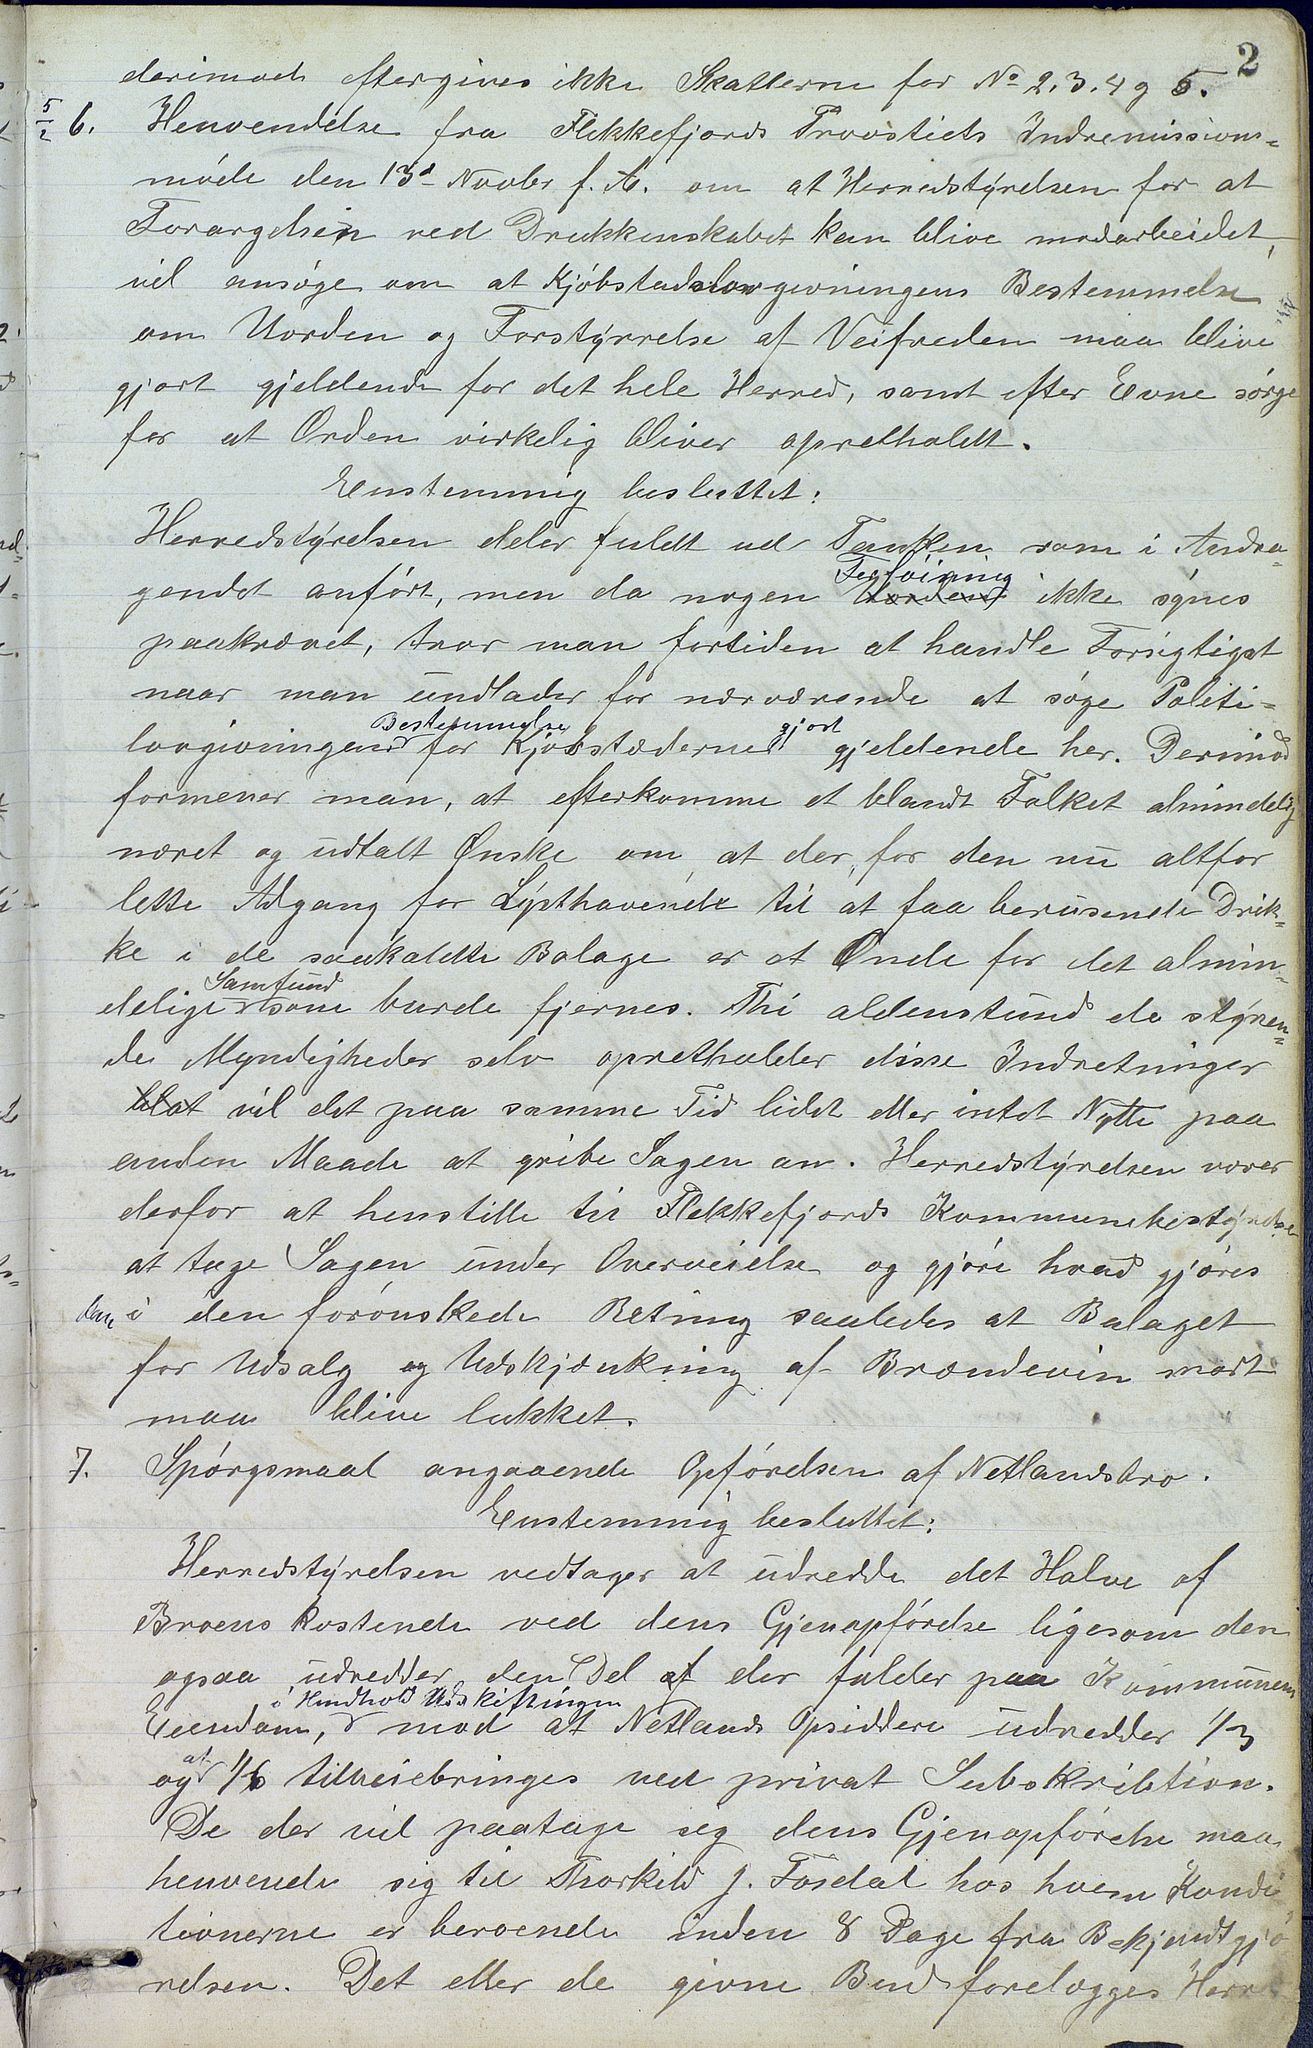 2
derimod eftergives ikke Skatterne for No 2. 3. 4 og 5.
5/2 6. Henvendelse fra Flekkefjords Provstiets Indremissions-
møde den 13d Novbr f. A. om at Herredstyrelsen for at
Forargelsen ved Drukkenskabet kan blive modarbeidet,
vil ansøge om at Kjøbstadslovgivningens Bestemmelse
om Uorden og Forstyrrelse af Veifreden maa blive
gjort gjeldende for det hele Herred, samt efter Evne sørge
for at Orden virkelig bliver opretholdt.
Enstemmig besluttet:
Herredstyrelsen deler fuldt ud Tanken som i Andra-
gendet anført, men da nogen Uorden Forføining ikke synes
paakrævet, tror man fortiden at handle Forsigtigst
naar man undlader for nærværende at søge Politi-
lovgivningens Bestemmelse for Kjøbstæderne gjort gjeldende her. Derimod
formener man, at efterkomme et blandt Folket almindelig
næret og udtalt Ønske om, at der, for den nu altfor
lette Adgang for Lysthavende til at faa berusende Drik-
ke i de saakaldte Bolage er et Onde for det almin-
delige Samfund som burde fjernes. Thi aldenstund de styren-
de Myndigheder selv opretholder disse Indretninger
blat vil det paa samme Tid lidet eller intet Nytte paa
anden Maade at gribe Sagen an. Herredstyrelsen vover
derfor at henstille til Flekkefjords Kommunebestyrelse
at tage Sagen under Overveielse og gjøre hvad gjøres
kan i den forønskede Retning saaledes at Bolaget
for Udsalg og Udskjænkning af Brændevin snart
maa blive lukket.
7. Spørgsmaal angaaende Opførelsen af Netlandsbro.
Enstemmig besluttet:
Herredstyrelsen vedtager at udredde det Halve af
Broens Kostende ved dens Gjenopførelse ligesom den
ogsaa udredder den Del af der falder paa Kommunens
Eiendom, i Henhold Udskiftningen mod at Netlands Opsiddere udredder 1/3
og at 1/6 tilveiebringes ved privat Subskribtion.
De der vil paatage sig dens Gjenopførelse maa
henvende sig til Thorkild J. Fosdal hos hvem Kondi-
tionerne er beroende inden 8 Dage fra Bekjendtgjø-
relsen. Det eller de givne Bud forelægges Herred